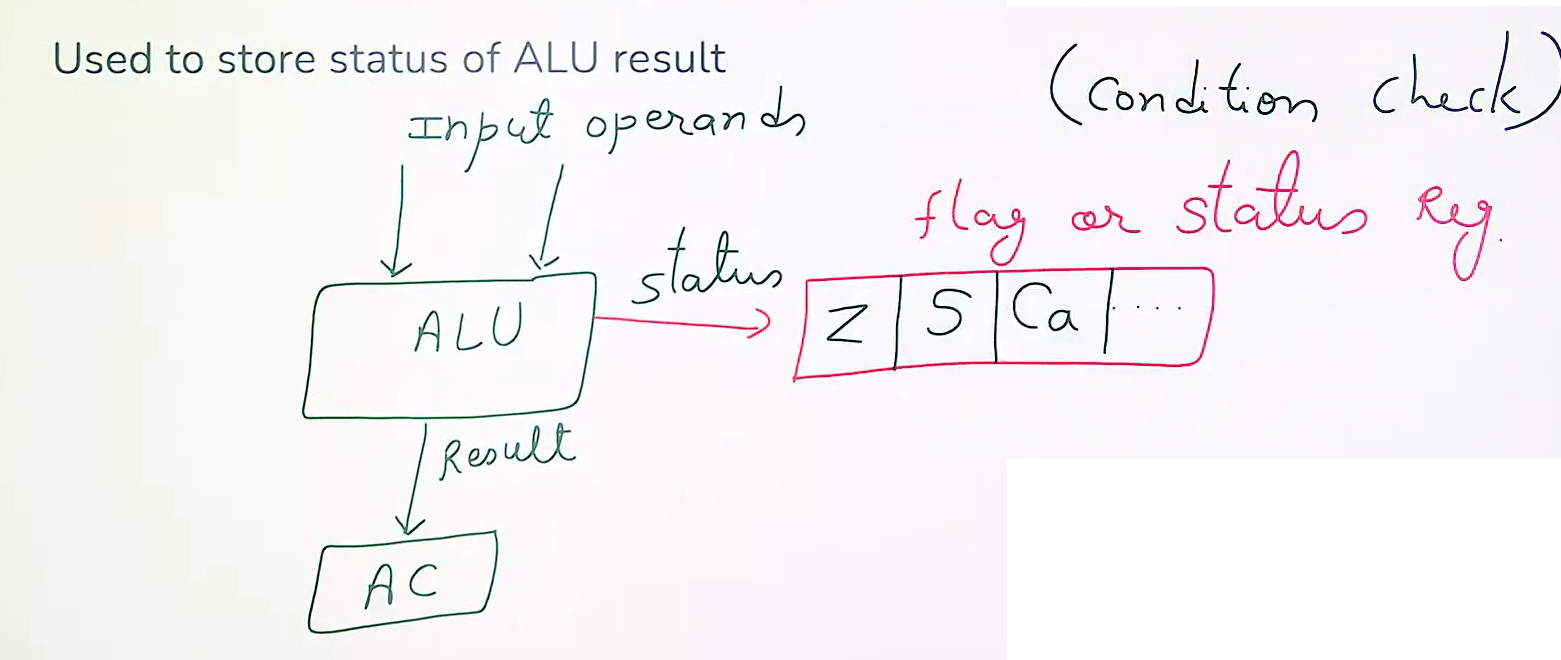 Used to store status of ALU result
(Condition check)
Input operands
flag or status Reg.
status
Z S Ca ....
ALU
Result
AC